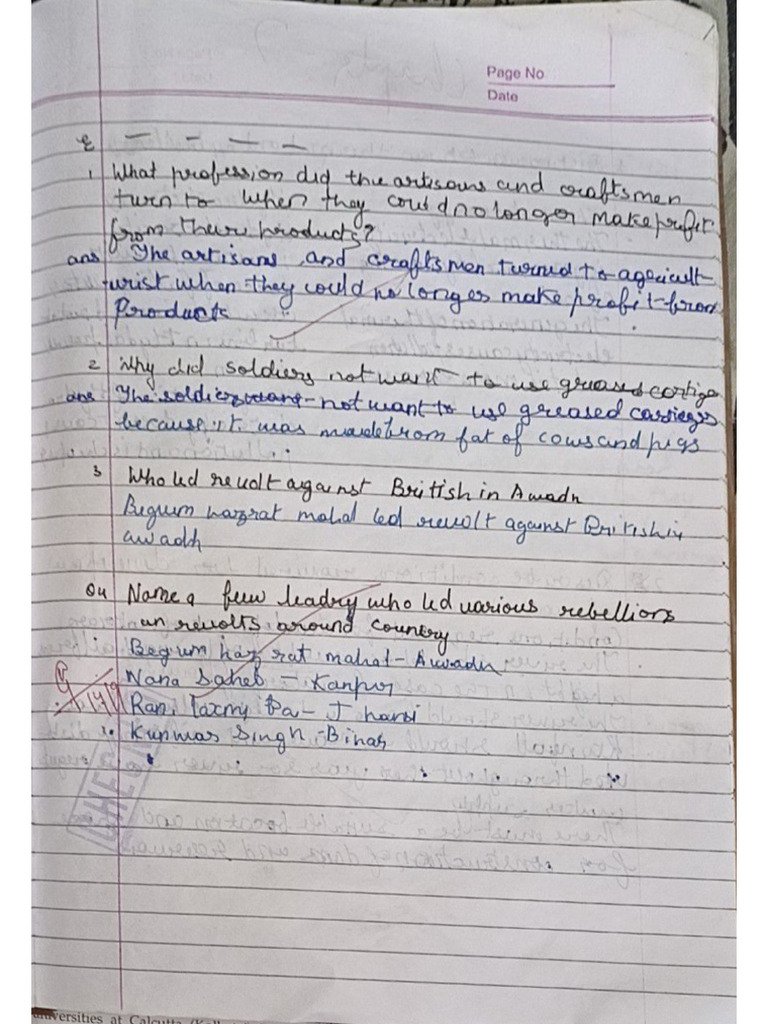 Page No
Date
1 What profession did the artisans and craftsmen
turn to when they could no longer make profit
from there products?
ans The artisans and craftsmen turned to agricult-
urist when they could no longer make profit from
Products
2 Why did soldiers not want to use greased
ans The not want to use greased
because it was made from fat of cows and pigs
3 Who led revolt against British in Awadh
Begum hazrat mahal led revolt against British in
awadh
Q4 Name a few who led various rebellions
an revolts around country
Begum haz rat mahal - Awadh
Nana Saheb - Kanpur
Rani laxmy Ba - Jhansi
Kunwar Singh - Bihar
CHECKED
universities at Calcutta